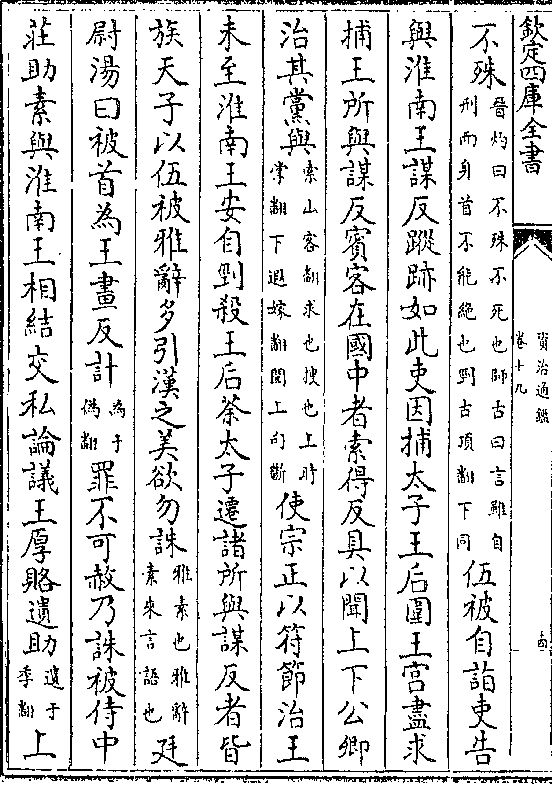 欽定四庫全書
資治通鑑
卷十九
不殊晉灼曰不殊不死也師古曰言雖自刑而身首不能絶也剄古頂翻下同伍被自詣吏告
與淮南王謀反蹤跡如此吏因捕太子王后圍王宫盡求
捕王所與謀反賓客在國中者索得反具以聞上下公卿
治其黨與索山客翻求也搜也上時掌翻下遐嫁翻聞上句斷使宗正以符節治王
未至淮南王安自剄殺王后荼太子遷諸所與謀反者皆
族天子以伍被雅辭多引漢之美欲勿誅雅素也雅辭素來言語也廷
尉湯曰被首為王畫反計為于偽翻罪不可赦乃誅被侍中
莊助素與淮南王相結交私論議王厚賂遺助遺于季翻上